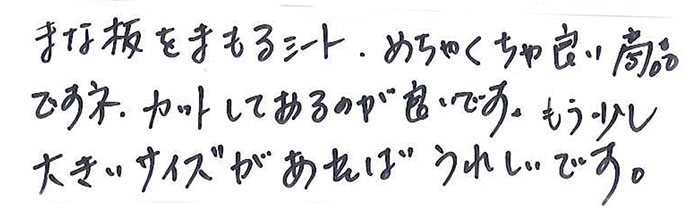 まな板をまもるシート．めちゃくちゃ良い商品
ですネ．カットしてあるのが良いです。もう少し
大きいサイズがあればうれしいです。